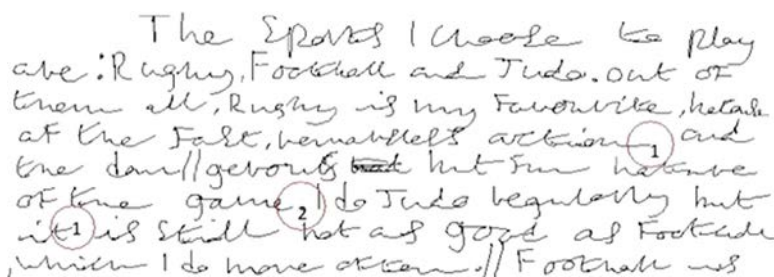 The Sports I choose to play
are: Rugby, Football and Judo. out of
them all, Rugby is my Favourite, becase
of the Fast, action 1 and
the dan//gerous but Fun nature
of the game 2 I do Judo regularly but
it 1 is Still not as good as Football
which I do more often. // Football is